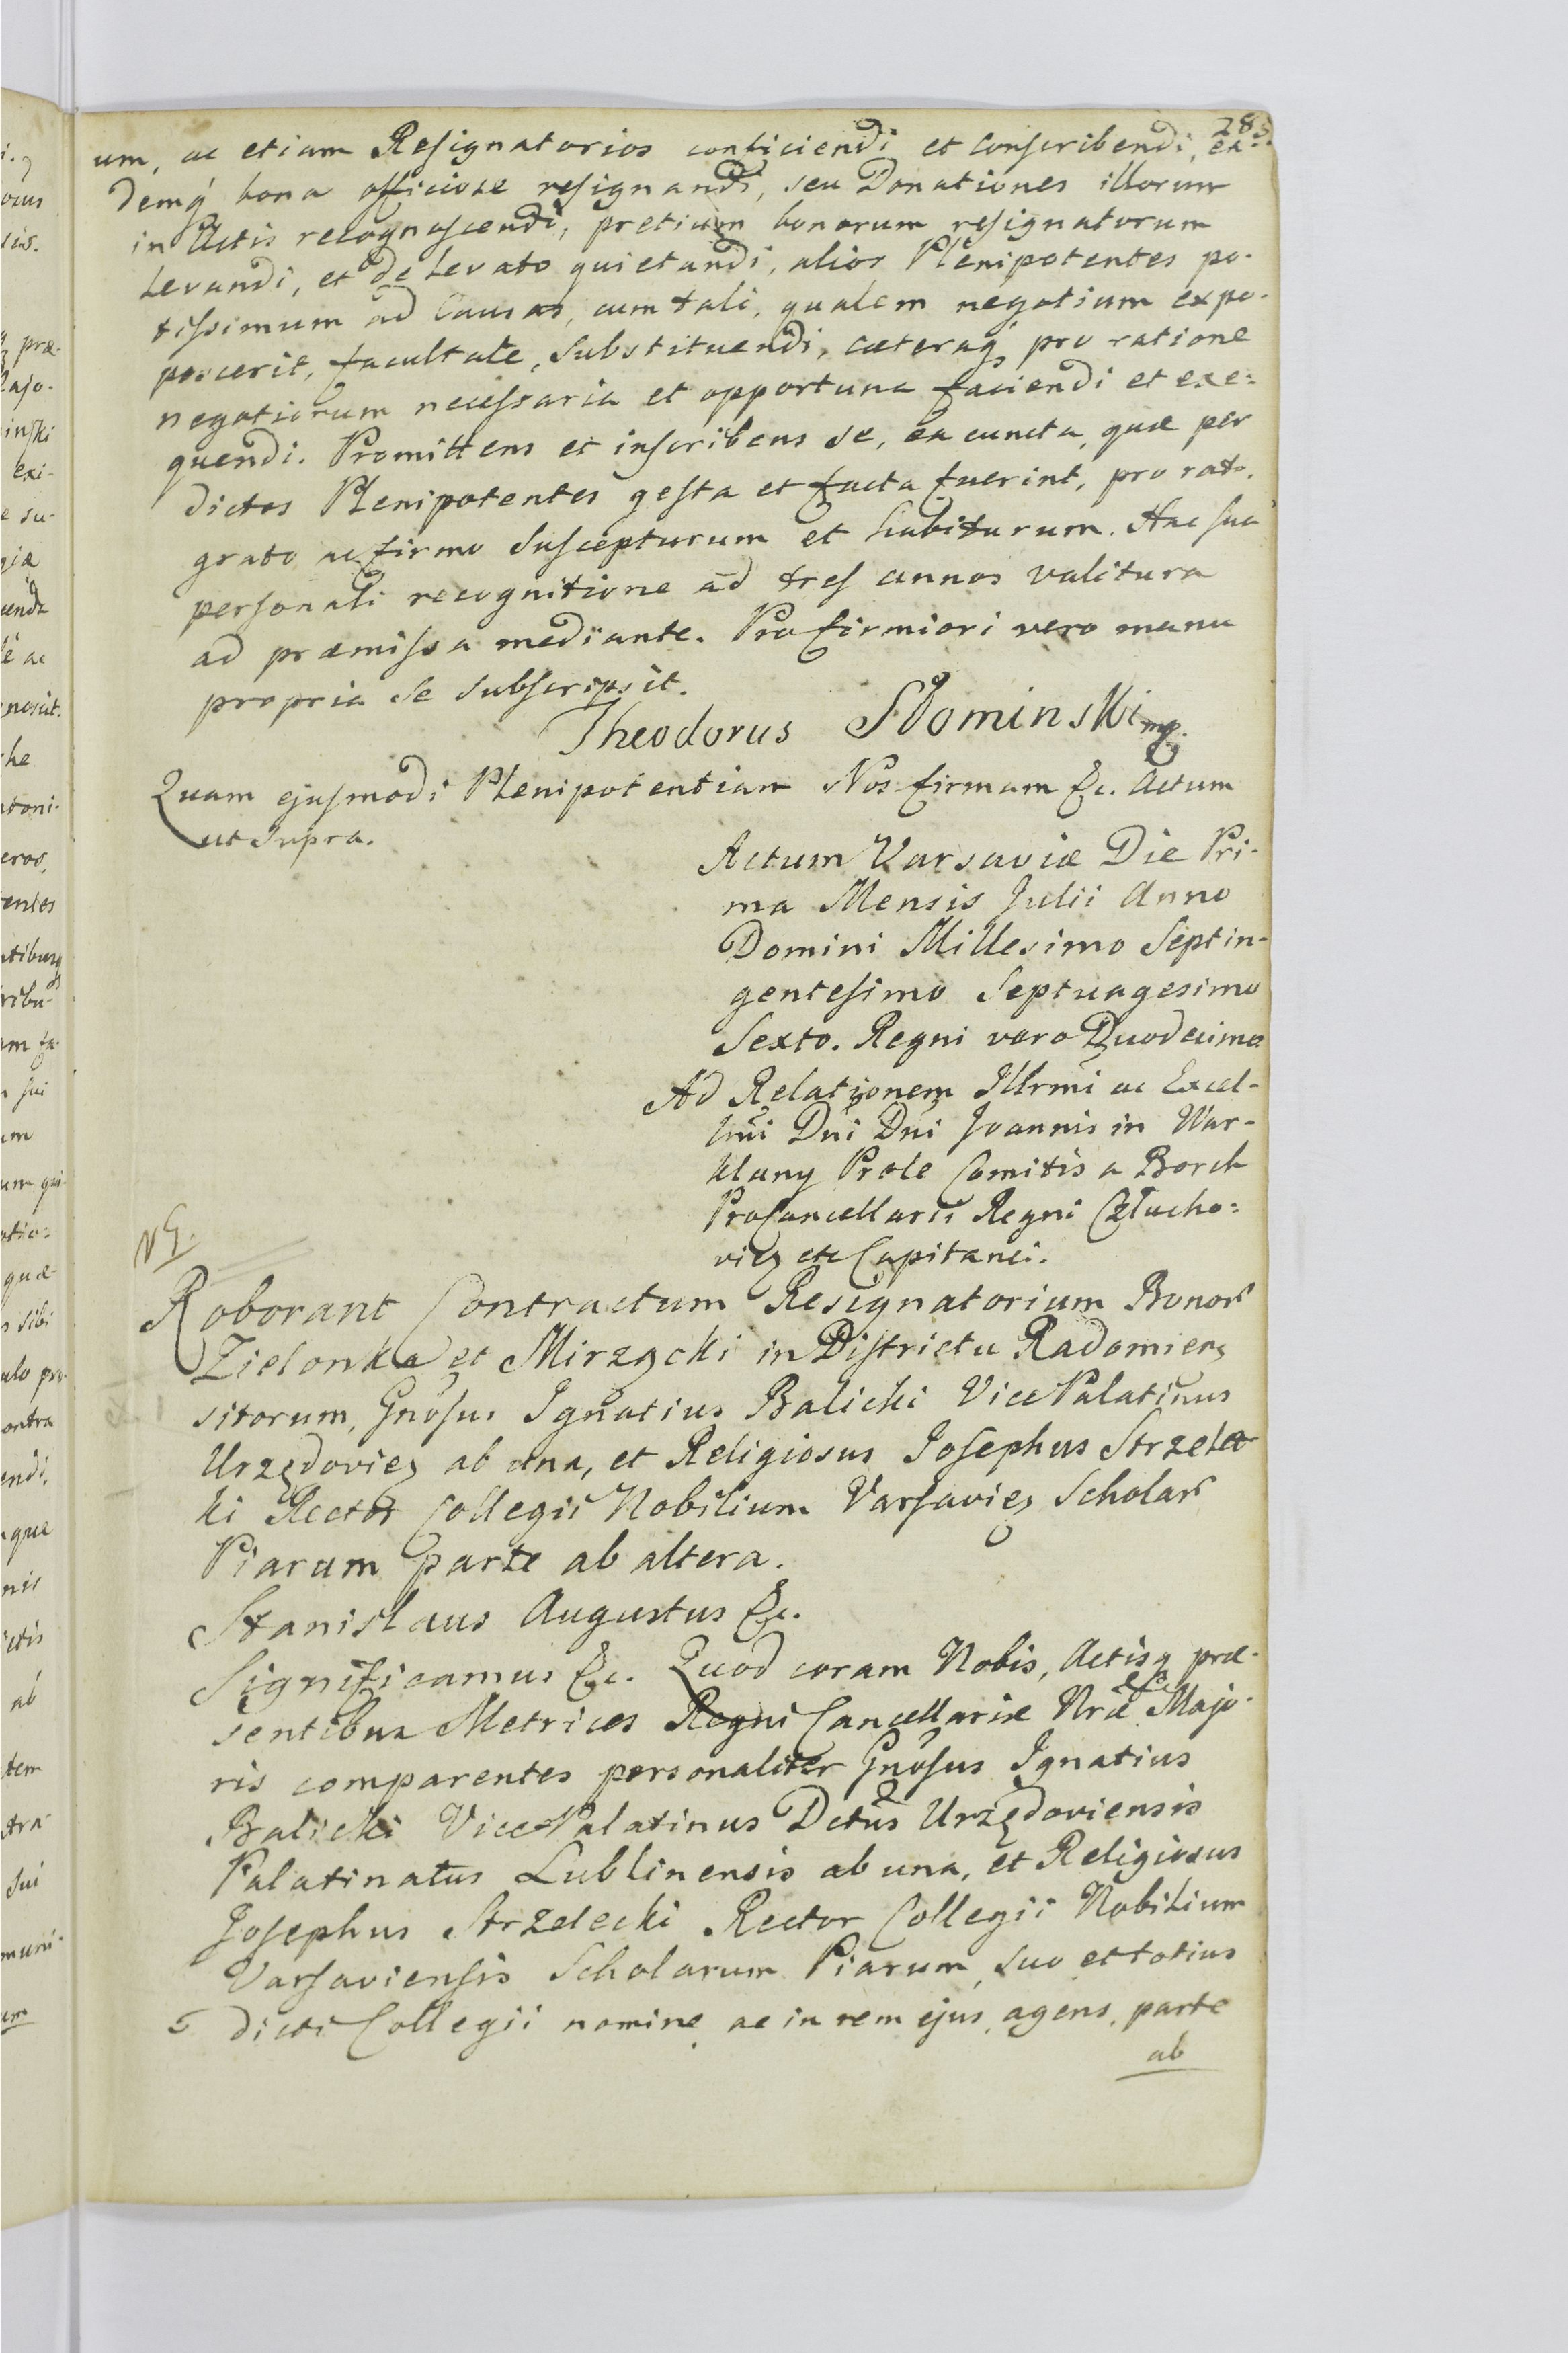 285
um, ac etiam Resignatorios conficiendi et conscribendi, ea-
demq́ bona officiose resignandi, seu Donationes illorum
in Actis recognoscendi, pretium bonorum resignatorum
Levandi, et de Levato quietandi, alios Plenipotentes po-
tissimum ad Causas, cum tali, qualem negotium expo-
poscerit, facultate, Substituendi, caeteraq́ pro ratione
negotiorum necessaria et opportuna faciendi et exe-
quendi. Promittens et inscribens se, ea cuncta, quae per
dictos Plenipotentes gesta et facta fuerint, pro rato,
grato ac firmo Suscepturum et habiturum. Hac sua
personali recognitione ad tres annos valitura
ad praemissa mediante. Pro firmiori vero manu
propria se Subscripsit.
Theodorus Słominski mp.
Quam ejusmodi Plenipotentiam Nos firmam &c. Actum
ut Supra.
Actum Varsaviæ Die Pri-
ma Mensis Julii Anno
Domini Millesimo Septin-
gentesimo Septuagesimo
Sexto. Regni vero Duodecimo
Ad Relationem Illrmi ac Excel-
lmi Dni Dni Joannis in War-
klany Prole Comitis a Borch
ProCancellarii Regni Człucho-
vien etc Capitanei.
Roborant Contractum Resignatorium Bonor
Zielonka et Mirzącki in Districtu Radomien
sitorum, Gnosus Ignatius Balicki VicePalatinus
Urzędovien ab una, et Religiosus Josephus Strzelec
ki Rector Collegii Nobilium Varsavien Scholar
Piarum parte ab altera.
Stanislaus Augustus &c.
Significamus &c. Quod coram Nobis, Actisq præ-
sentibus Metrices Regni Cancellariæ Nræ Majo-
ris comparentes personaliter Gnosus Ignatius
Balicki VicePalatinus Dctus Urzędoviensis
Palatinatus Lublinensis ab una, et Religiosus
Josephus Strzelecki Rector Collegii Nobilium
Varsaviensis Scholarum Piarum, suo et totius
dicti Collegii nomine, ac in rem ejus, agens, parte
ab